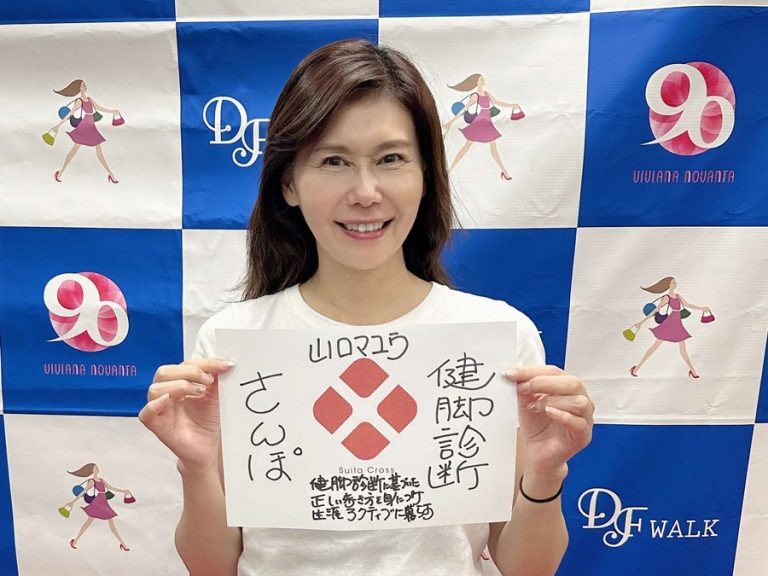 DF
90
VIVIANA NOVANTA
90
VIVIANA NOVANTA
山口マユウ
健脚診断
さんぽ
Suita Cross
健脚診断に基づいた
正しい歩き方を身につけ
生涯アクティブに暮らす
DF WALK